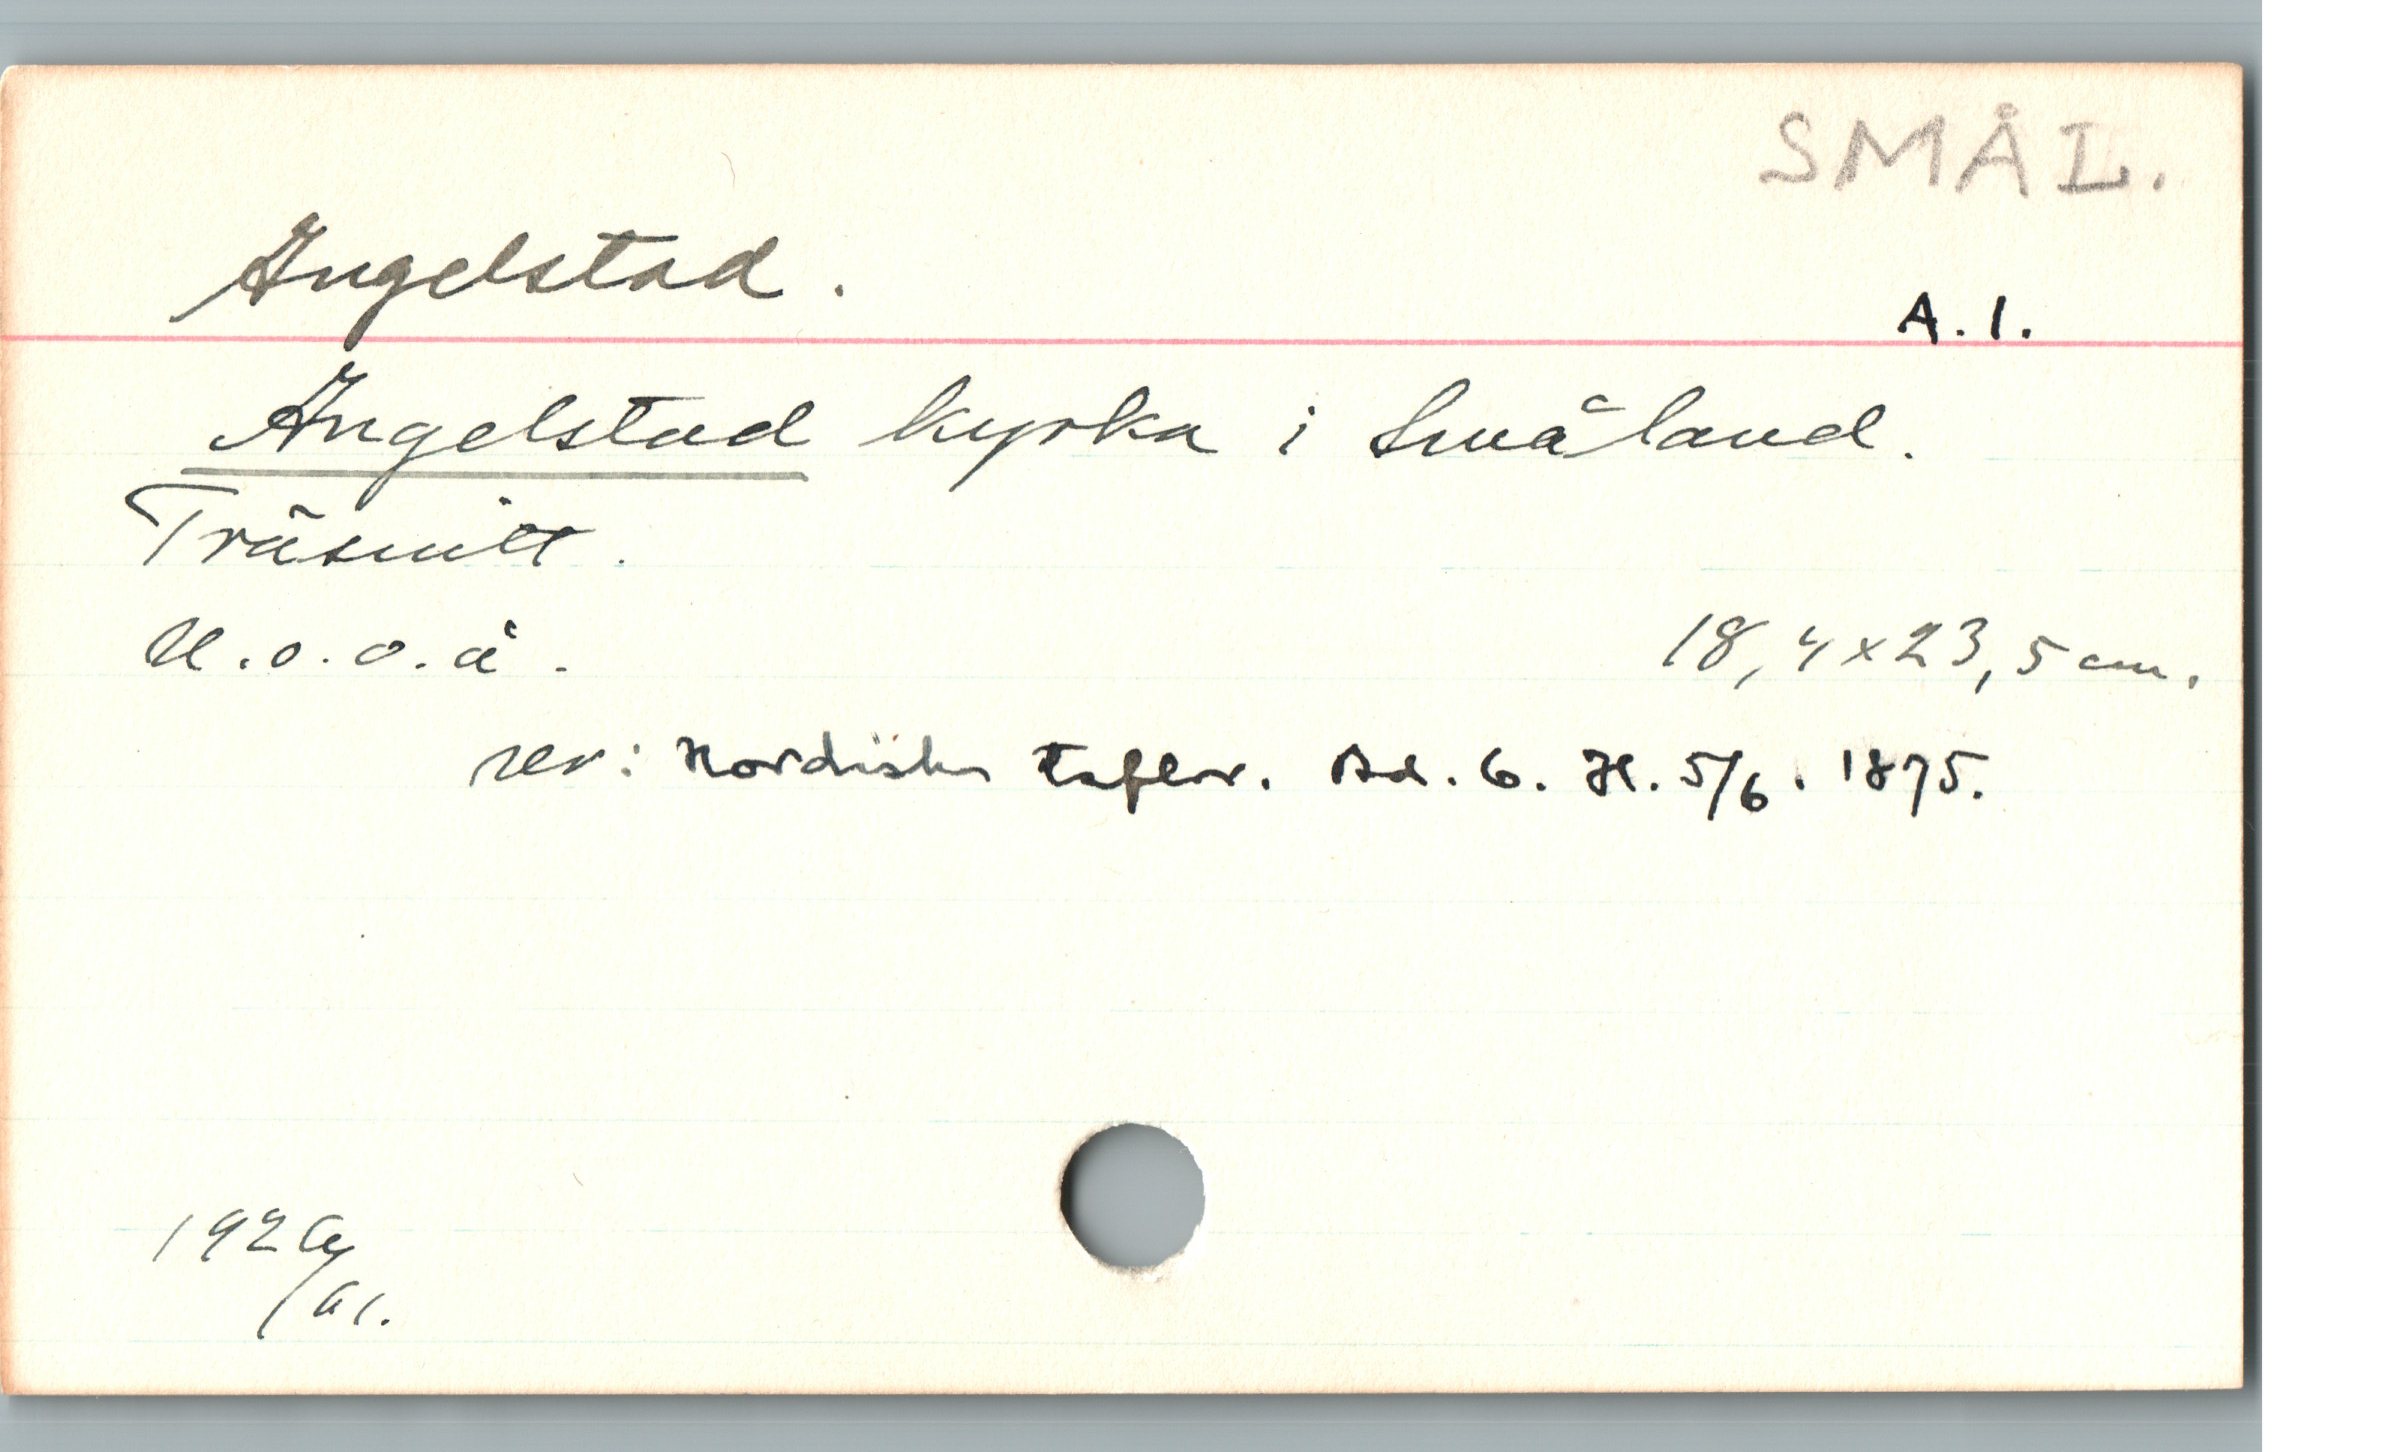 SMÅL.
Angelstad.
A. 1.
Angelstad kyrka i Småland.
Träsnitt.
U. o. o. å.
18,4x23,5 cm.
ur: Nordiska taflor. Bd. 6. H. 5/6. 1875.
192
/61.